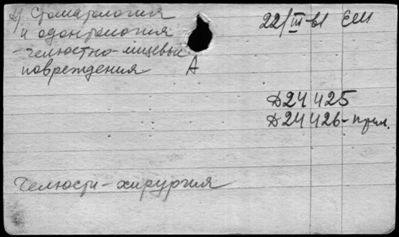 4) Стоматология 22/III-61 ЕСМ
и одонтология
- челюстно-лицевые
повреждения А
Д24425
Д24426-прил.
Челюсти-хирургия